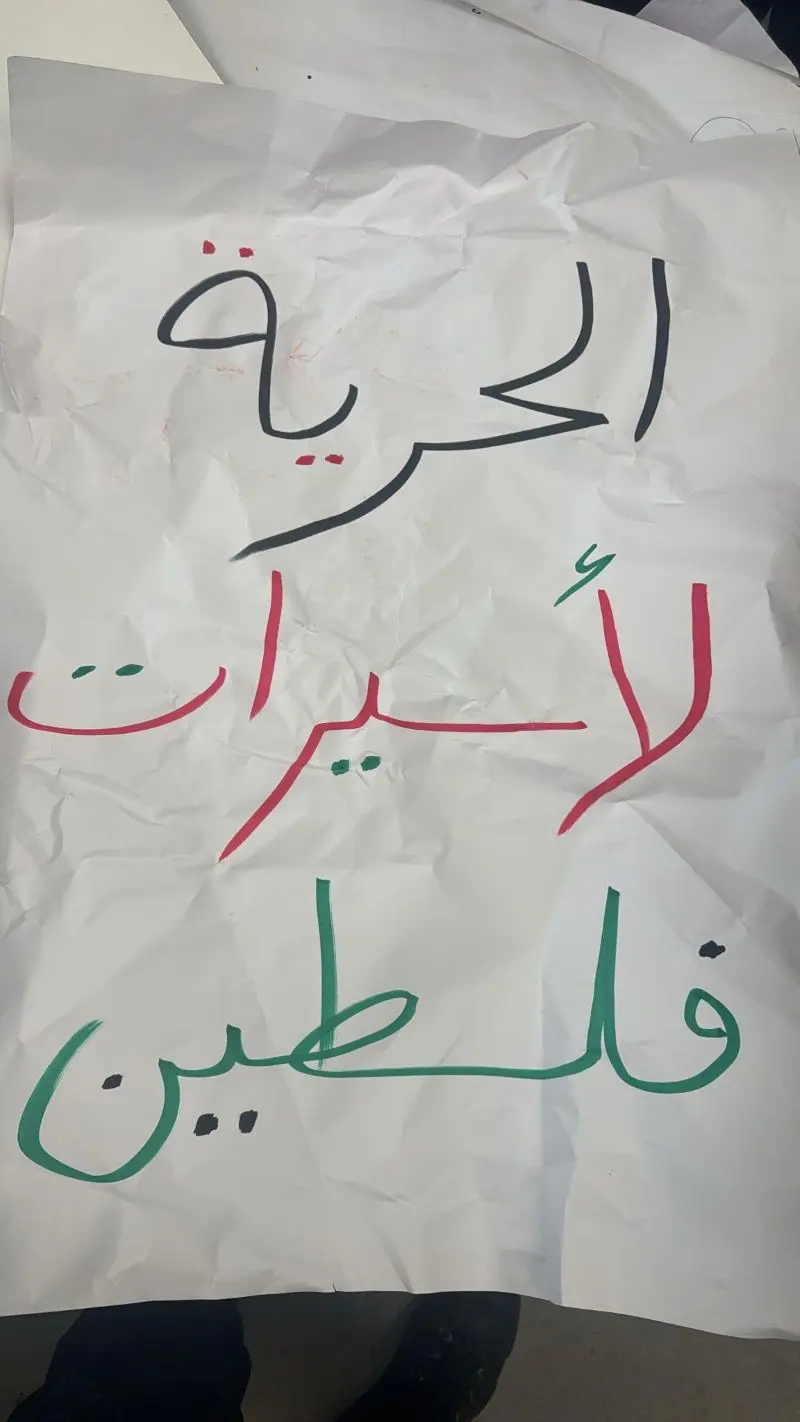 الحرية
لأسيرات
فلسطين